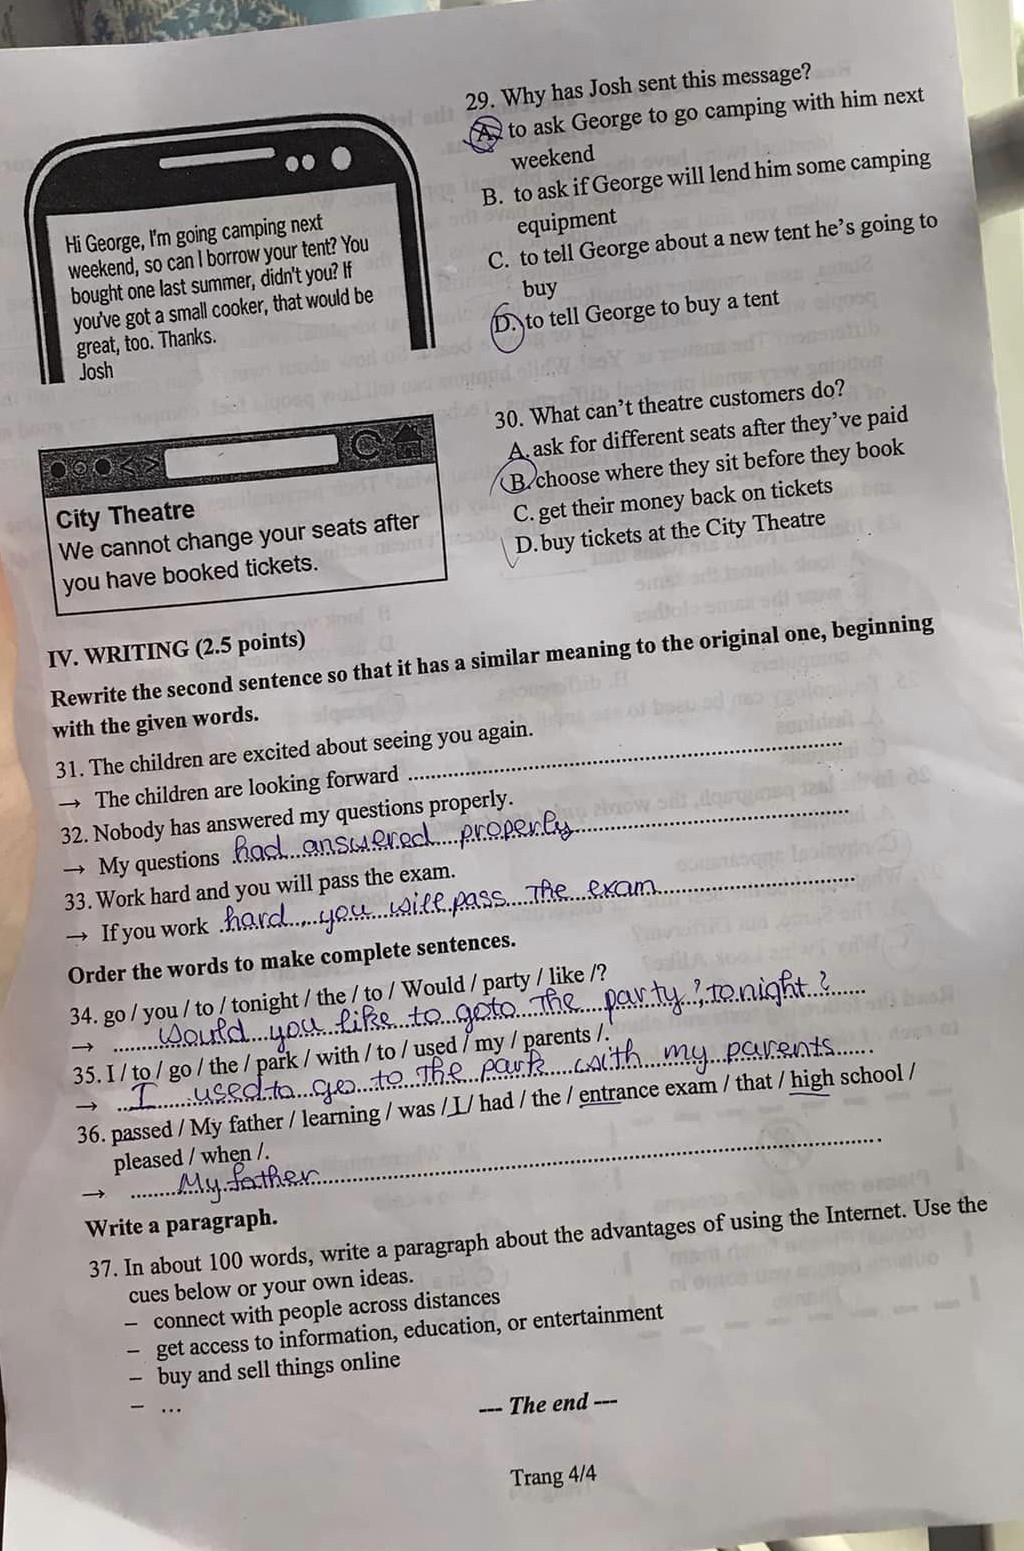 Hi George, I'm going camping next
weekend, so can I borrow your tent? You
bought one last summer, didn't you? If
you've got a small cooker, that would be
great, too. Thanks.
Josh
29. Why has Josh sent this message?
A. to ask George to go camping with him next
weekend
B. to ask if George will lend him some camping
equipment
C. to tell George about a new tent he's going to
buy
D. to tell George to buy a tent
City Theatre
We cannot change your seats after
you have booked tickets.
30. What can't theatre customers do?
A. ask for different seats after they've paid
B. choose where they sit before they book
C. get their money back on tickets
D. buy tickets at the City Theatre
IV. WRITING (2.5 points)
Rewrite the second sentence so that it has a similar meaning to the original one, beginning
with the given words.
31. The children are excited about seeing you again.
→ The children are looking forward ..........
32. Nobody has answered my questions properly.
→ My questions had answered properly
33. Work hard and you will pass the exam.
→ If you work hard, you will pass the exam
Order the words to make complete sentences.
34. go / you / to / tonight / the / to / Would / party / like /?
→ Would you like to go to the party, tonight?
35. I / to / go / the / park / with / to / used / my / parents /.
→ I used to go to the park with my parents
36. passed / My father / learning / was / I / had / the / entrance exam / that / high school /
pleased / when /.
→ My father
Write a paragraph.
37. In about 100 words, write a paragraph about the advantages of using the Internet. Use the
cues below or your own ideas.
– connect with people across distances
– get access to information, education, or entertainment
– buy and sell things online
– ...
--- The end ---
Trang 4/4